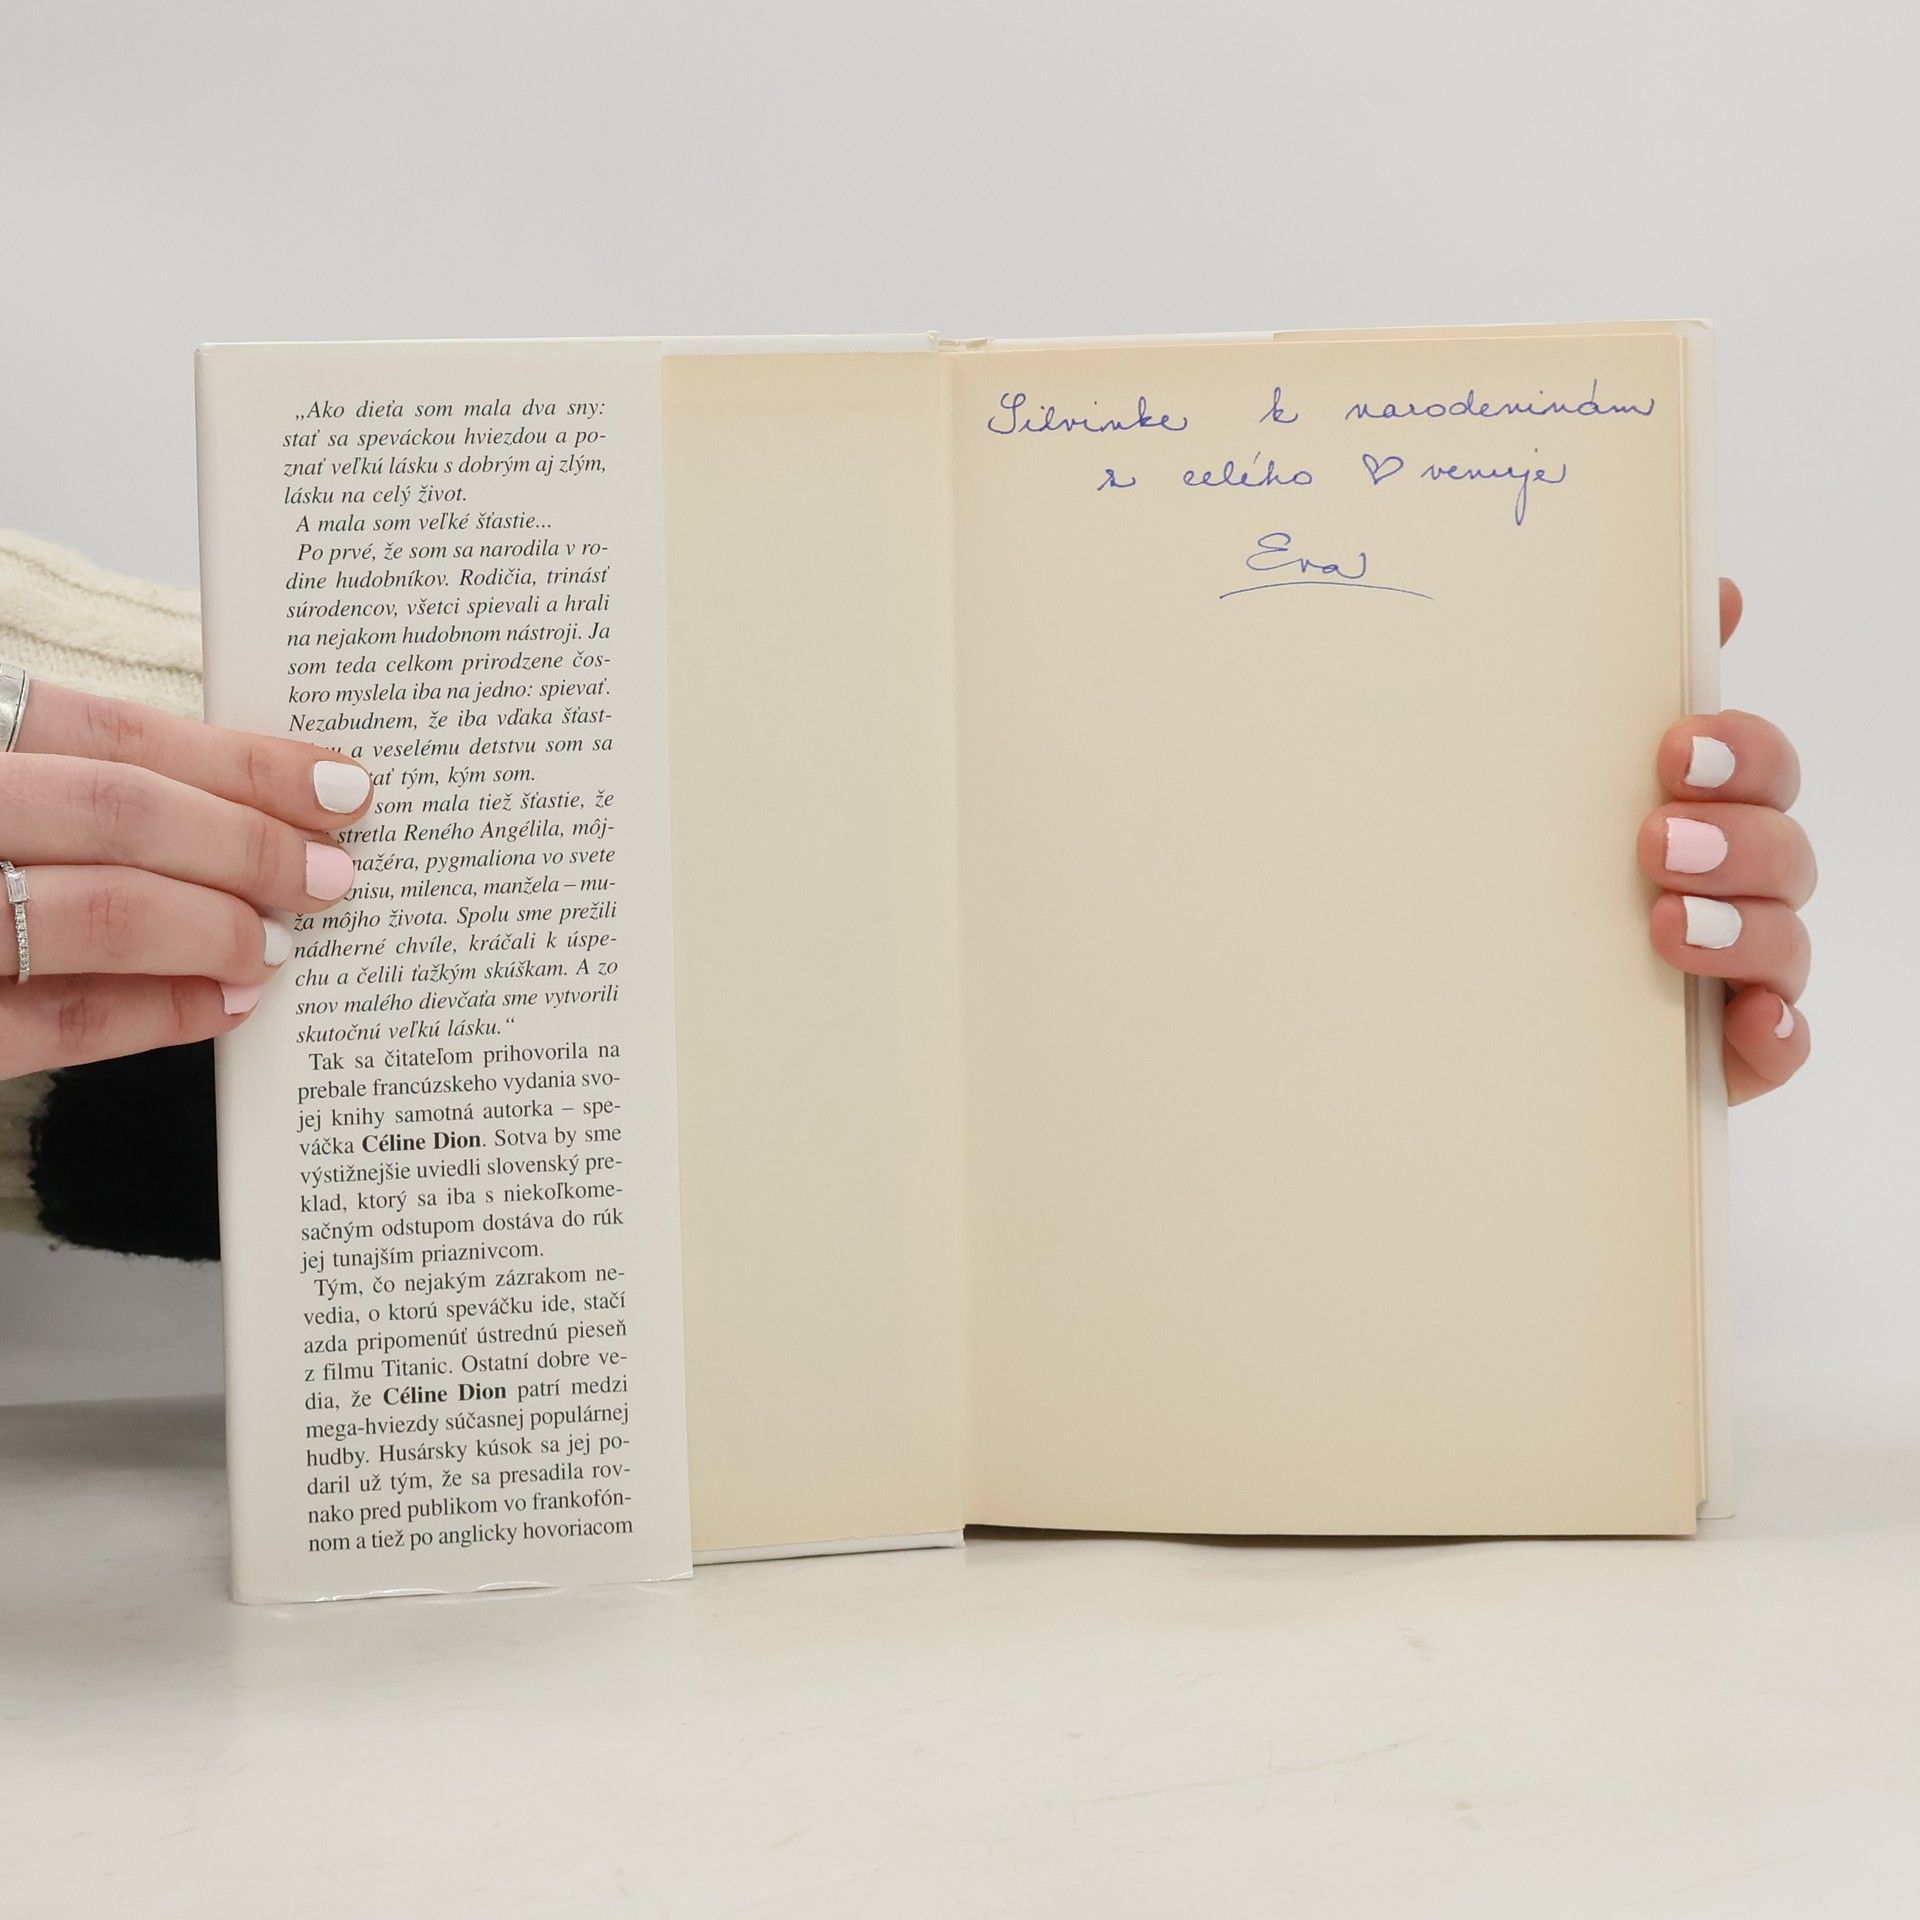 „Ako dieťa som mala dva sny:
stať sa speváckou hviezdou a po-
znať veľkú lásku s dobrým aj zlým,
lásku na celý život.
A mala som veľké šťastie...
Po prvé, že som sa narodila v ro-
dine hudobníkov. Rodičia, trinásť
súrodencov, všetci spievali a hrali
na nejakom hudobnom nástroji. Ja
som teda celkom prirodzene čos-
koro myslela iba na jedno: spievať.
Nezabudnem, že iba vďaka šťast-
a veselému detstvu som sa
tým, kým som.
som mala tiež šťastie, že
stretla Reného Angélila, môj-
pygmaliona vo svete
milenca, manžela – mu-
ža môjho života. Spolu sme prežili
nádherné chvíle, kráčali k úspe-
chu a čelili ťažkým skúškam. A zo
snov malého dievčaťa sme vytvorili
skutočnú veľkú lásku.“
Tak sa čitateľom prihovorila na
prebale francúzskeho vydania svo-
jej knihy samotná autorka – spe-
váčka Céline Dion. Sotva by sme
výstižnejšie uviedli slovenský pre-
klad, ktorý sa iba s niekoľkome-
sačným odstupom dostáva do rúk
jej tunajším priaznivcom.
Tým, čo nejakým zázrakom ne-
vedia, o ktorú speváčku ide, stačí
azda pripomenúť ústrednú pieseň
z filmu Titanic. Ostatní dobre ve-
dia, že Céline Dion patrí medzi
mega-hviezdy súčasnej populárnej
hudby. Husársky kúsok sa jej po-
daril už tým, že sa presadila rov-
nako pred publikom vo frankofón-
nom a tiež po anglicky hovoriacom
Silvinke k narodeninám
z celého ♡ venuje
Eva